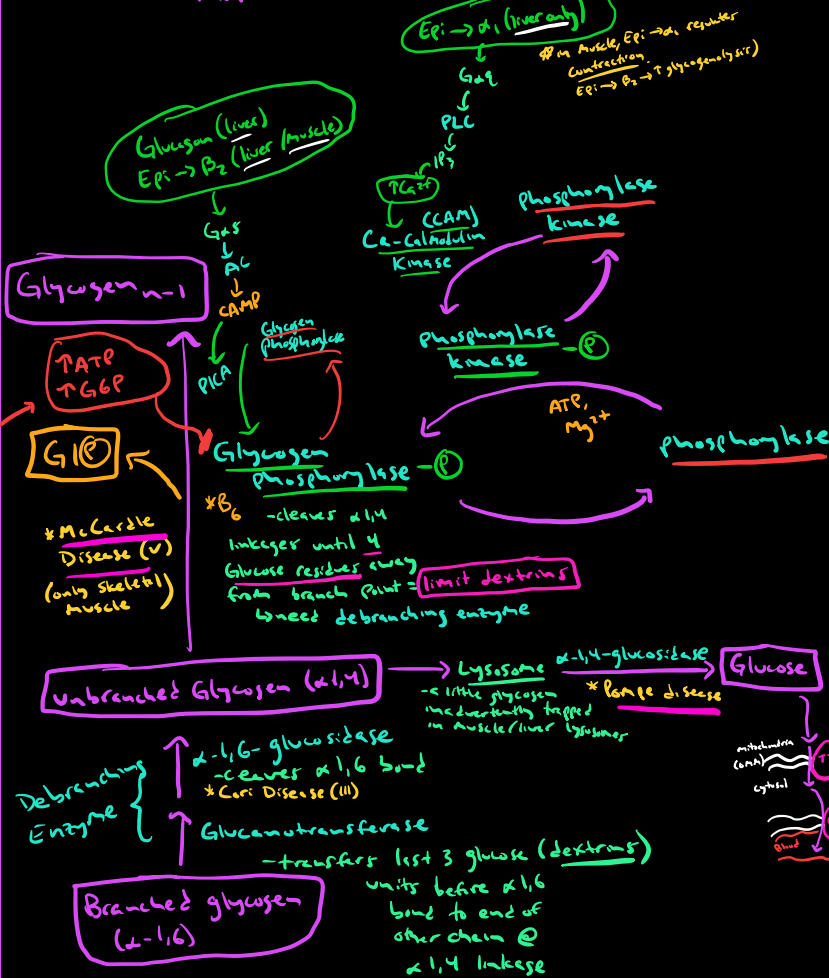 Epi → α₁ (liver only)
* in Muscle, Epi → α₁ regulates
contraction.
Epi → B₂ → ↑ glycogenolysis)
Gαq
PLC
IP₃
↑Ca²⁺
(CAM)
Ca-Calmodulin
Kinase
Glucagon (liver)
Epi → B₂ (liver/muscle)
Gαs
AC
CAMP
PKA
Phosphorylase
kinase
Phosphorylase
kinase -P
Glycogen n-1
Glycogen
Phosphorylase
↑ATP
↑G6P
G1P
ATP,
Mg²⁺
Phosphorylase
Glycogen
Phosphorylase -P
*B₆
-cleaves α1,4
linkages until 4
Glucose residues away
from branch point = limit dextrins
↳need debranching enzyme
*McCardle
Disease (V)
(only skeletal)
muscle
unbranched Glycogen (α1,4)
Lysosome
-a little glycogen
inadvertently trapped
in muscle/liver lysosomes
α-1,4-glucosidase
* Pompe disease
Glucose
mitochondria
(OMM)
cytosol
Blood
T
Debranching
Enzyme
α-1,6-glucosidase
-cleaves α1,6 bond
*Cori Disease (III)
Glucanotransferase
-transfers last 3 glucose (dextrins)
units before α1,6
bond to end of
other chain @
α1,4 linkage
Branched glycogen
(α-1,6)